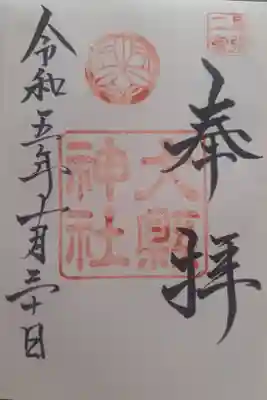 奉拝
大縣
神社
令和五年十一月三十日